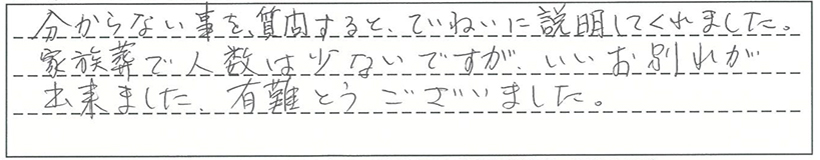 分からない事を、質問すると、ていねいに説明してくれました。
家族葬で人数は少ないですが、いいお別れが
出来ました、有難とうございました。